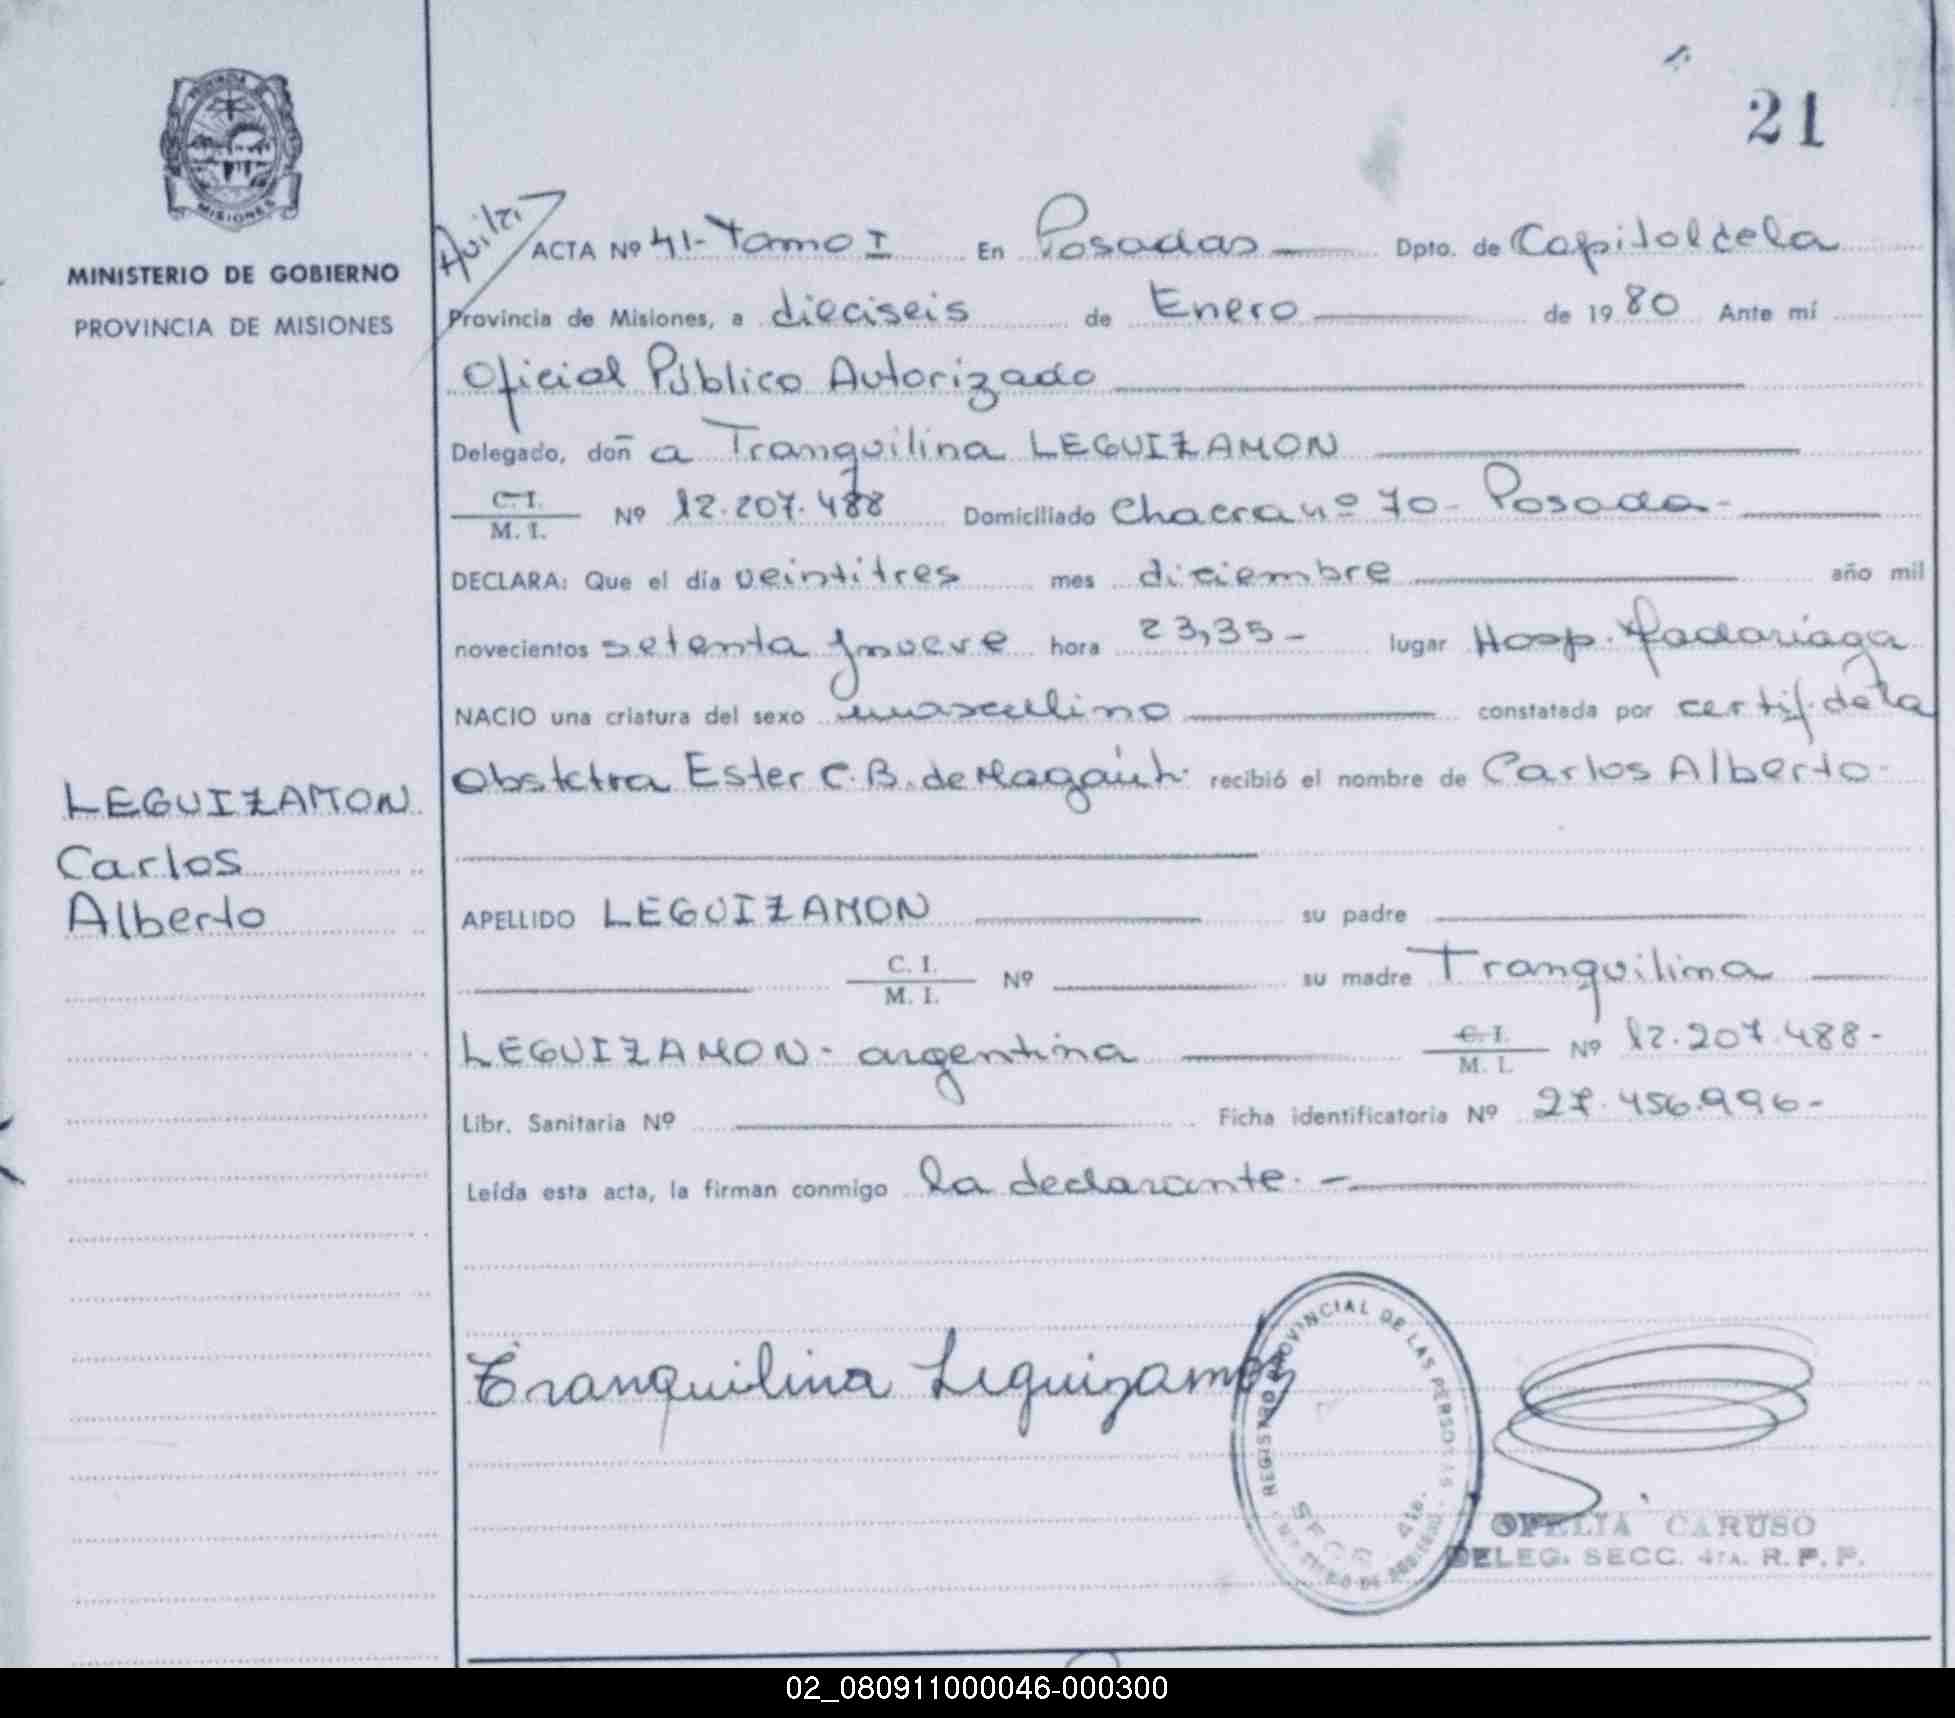 21
PROVINCIA DE
MISIONES
MINISTERIO DE GOBIERNO
PROVINCIA DE MISIONES
ACTA Nº 41- Tomo I En Posadas Dpto. de Capital de la
Provincia de Misiones, a dieciseis de Enero de 1980 Ante mí
Oficial Público Autorizado
Delegado, doña Tranquilina LEGUIZAMON
C.I.
M. I. Nº 12.207.488 Domiciliado Chacra nº 70- Posada-
DECLARA: Que el día veintitres mes diciembre año mil
novecientos setenta y nueve hora 23,35- lugar Hosp. Madariaga
NACIO una criatura del sexo masculino constatada por certif. de la
Obstetra Ester C. B. de recibió el nombre de Carlos Alberto-
LEGUIZAMON
Carlos
Alberto
APELLIDO LEGUIZAMON su padre
C. I.
M. I. Nº su madre Tranquilina
LEGUIZAMON- argentina C. I.
M. I. Nº 12.207.488-
Libr. Sanitaria Nº Ficha identificatoria Nº 27.456.996-
Leída esta acta, la firman conmigo la declarante.-
Tranquilina Leguizamon
REGISTRO PROVINCIAL DE LAS PERSONAS
SECC. 4ta.
OFELIA CARUSO
DELEG. SECC. 4TA. R. P. P.
02_080911000046-000300